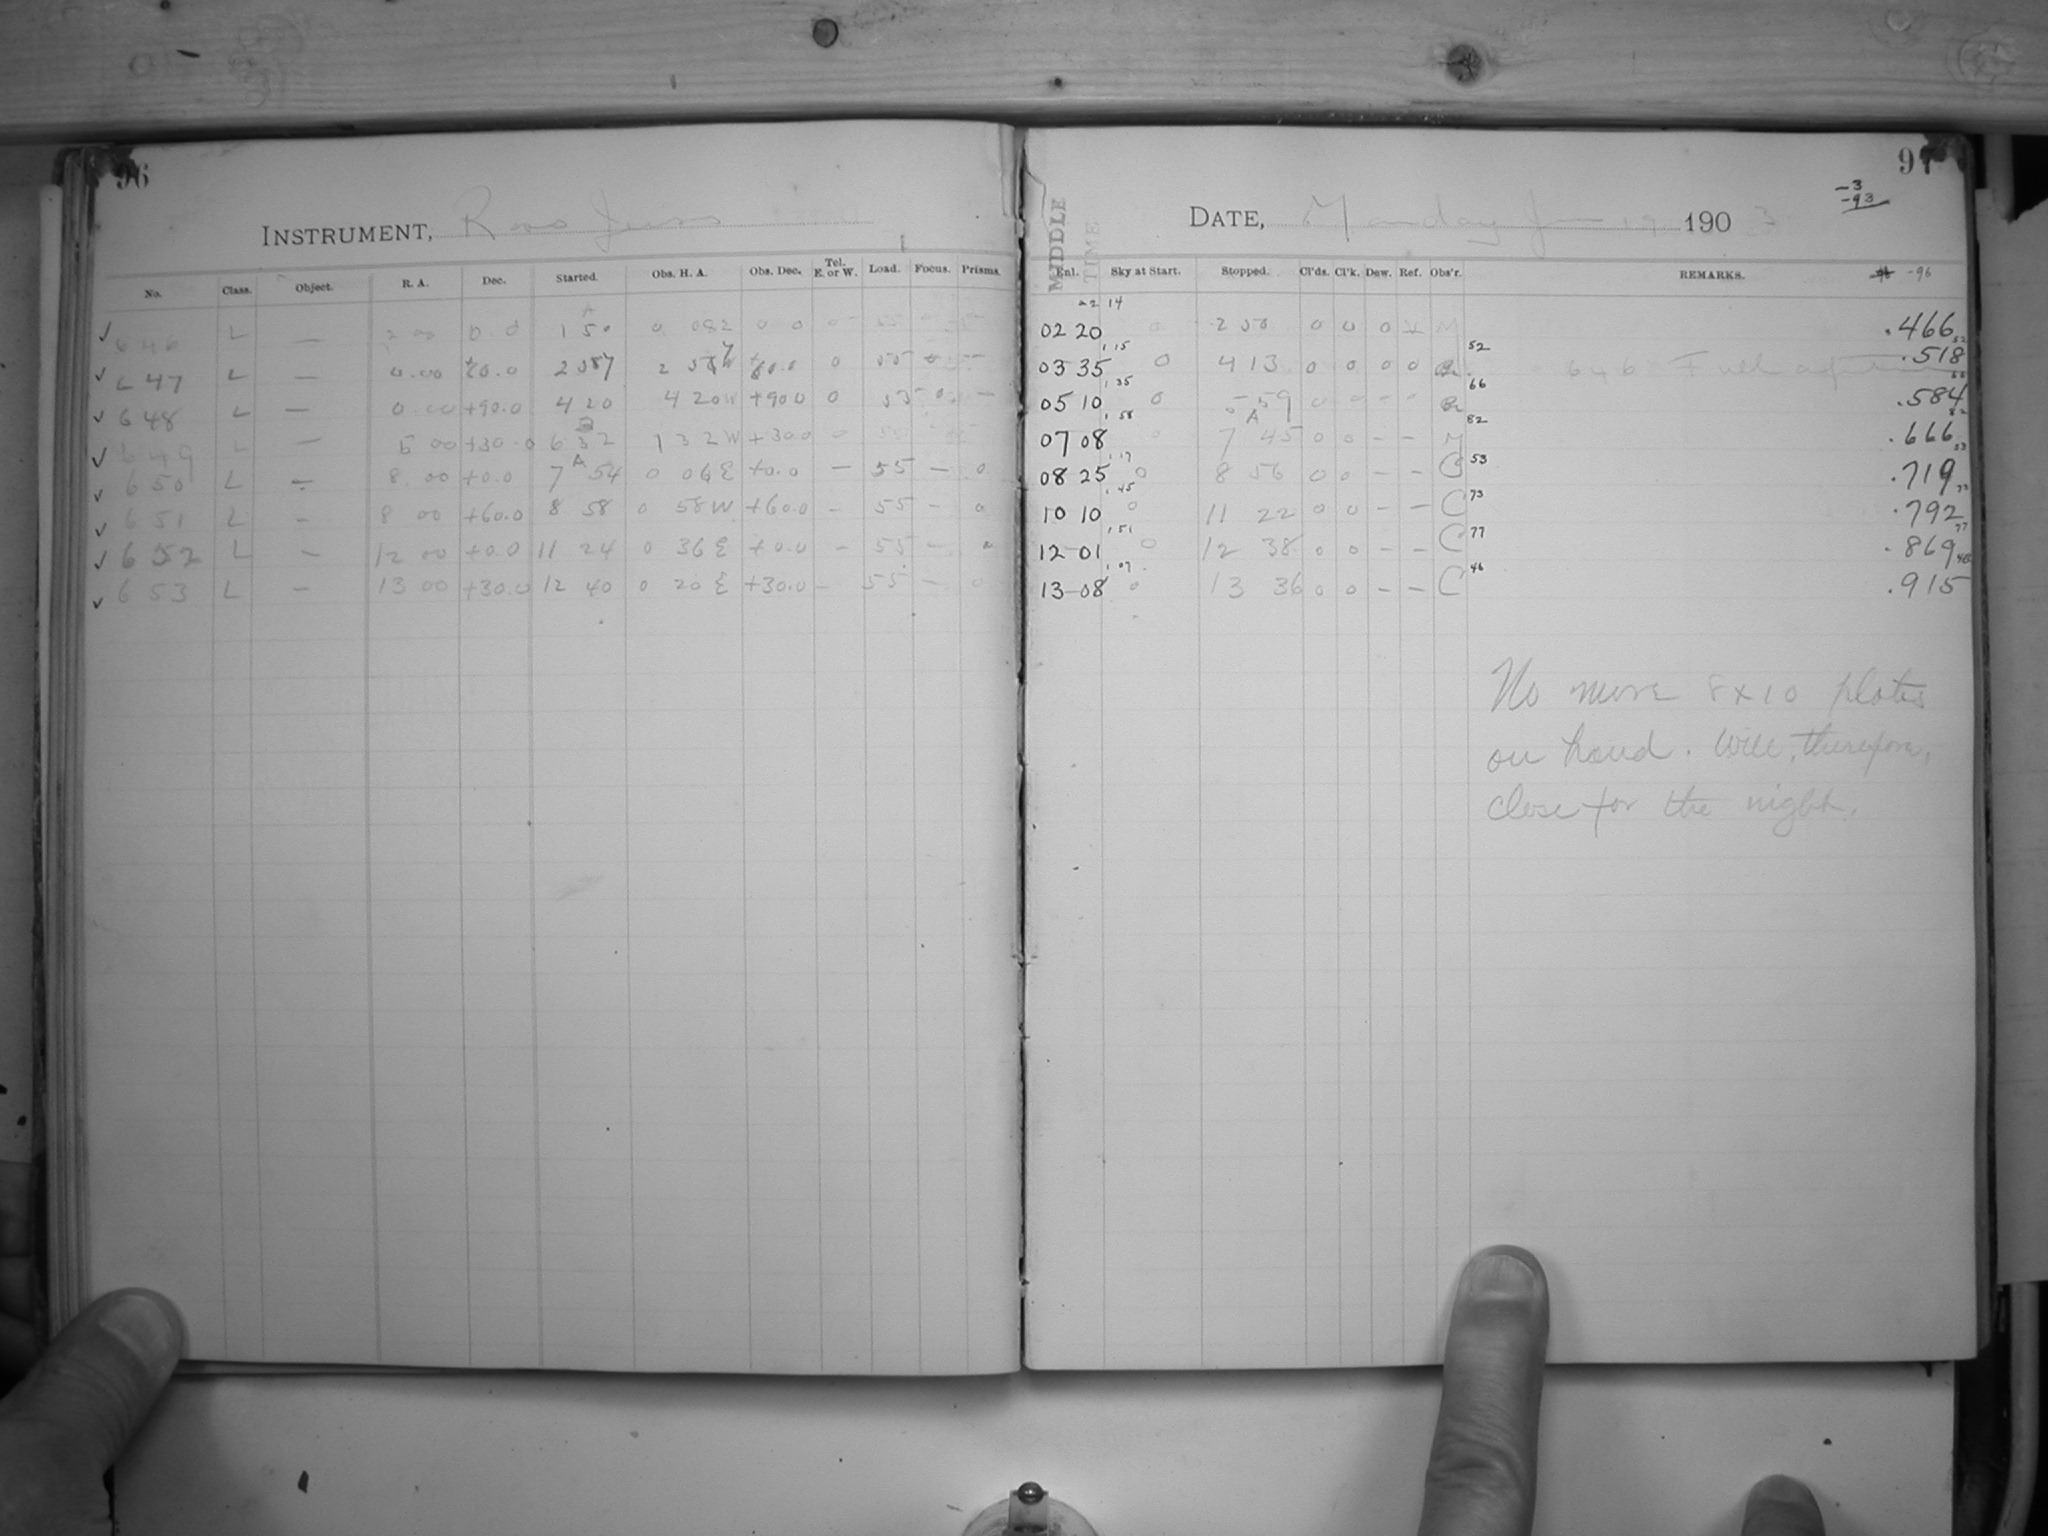 96
INSTRUMENT, Ross
No. Class. Object. R. A. Dec. Started. Obs. H. A. Obs. Dec. Tel. E. or W. Load. Focus. Prisms.
646 L — 2 00 0.0 1 50 0 0 0
647 L — 0.00 2 0 55
648 L — 0.00 +90.0 4 20 4 20W +90.0 0 —
649 L — 5 00 +30.0 6 32 1 32W +30.0
650 L — 8 00 +0.0 7 54 0 06E +0.0 — 55 — 0
651 L — 8 00 +60.0 8 58 0 58W +60.0 — 55 — 0
652 L — 12 00 +0.0 11 24 0 36E +0.0 — 55 —
653 L — 13 00 +30.0 12 40 0 20E +30.0 — 55 — 0
97
-3
-93
DATE, Monday 19 1903
MIDDLE TIME
Enl. Sky at Start. Stopped. Cl'ds. Cl'k. Dew. Ref. Obs'r. REMARKS. -96
14
02 20 0 2 50 0 0 0 M .466 52
1 15 52
03 35 0 4 13 0 0 0 0 646 Full .518 66
1 35 66
05 10 0 59 0 — — .584 82
1 58 A 82
07 08 7 45 0 0 — — M .666 53
1 17 53
08 25 0 8 56 0 0 — — C .719 73
1 45 73
10 10 0 11 22 0 0 — — C .792 77
1 51 77
12 01 0 12 38 0 0 — — C .869 46
1 07 46
13 08 0 13 36 0 0 — — C .915
No more 8x10 plates
on hand. Will, therefore,
close for the night.